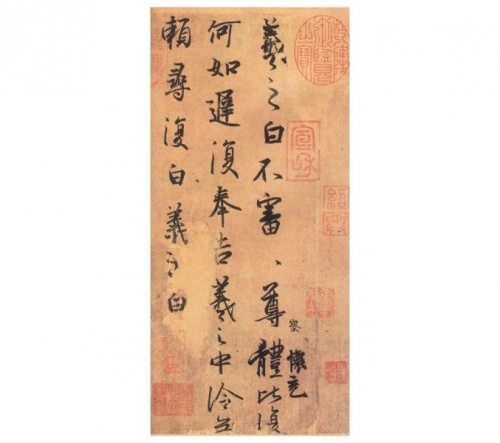 羲之白不審、尊體比復
察懷充
何如遲復奉告羲之中冷無
賴尋復白羲之白
宣和
紹興